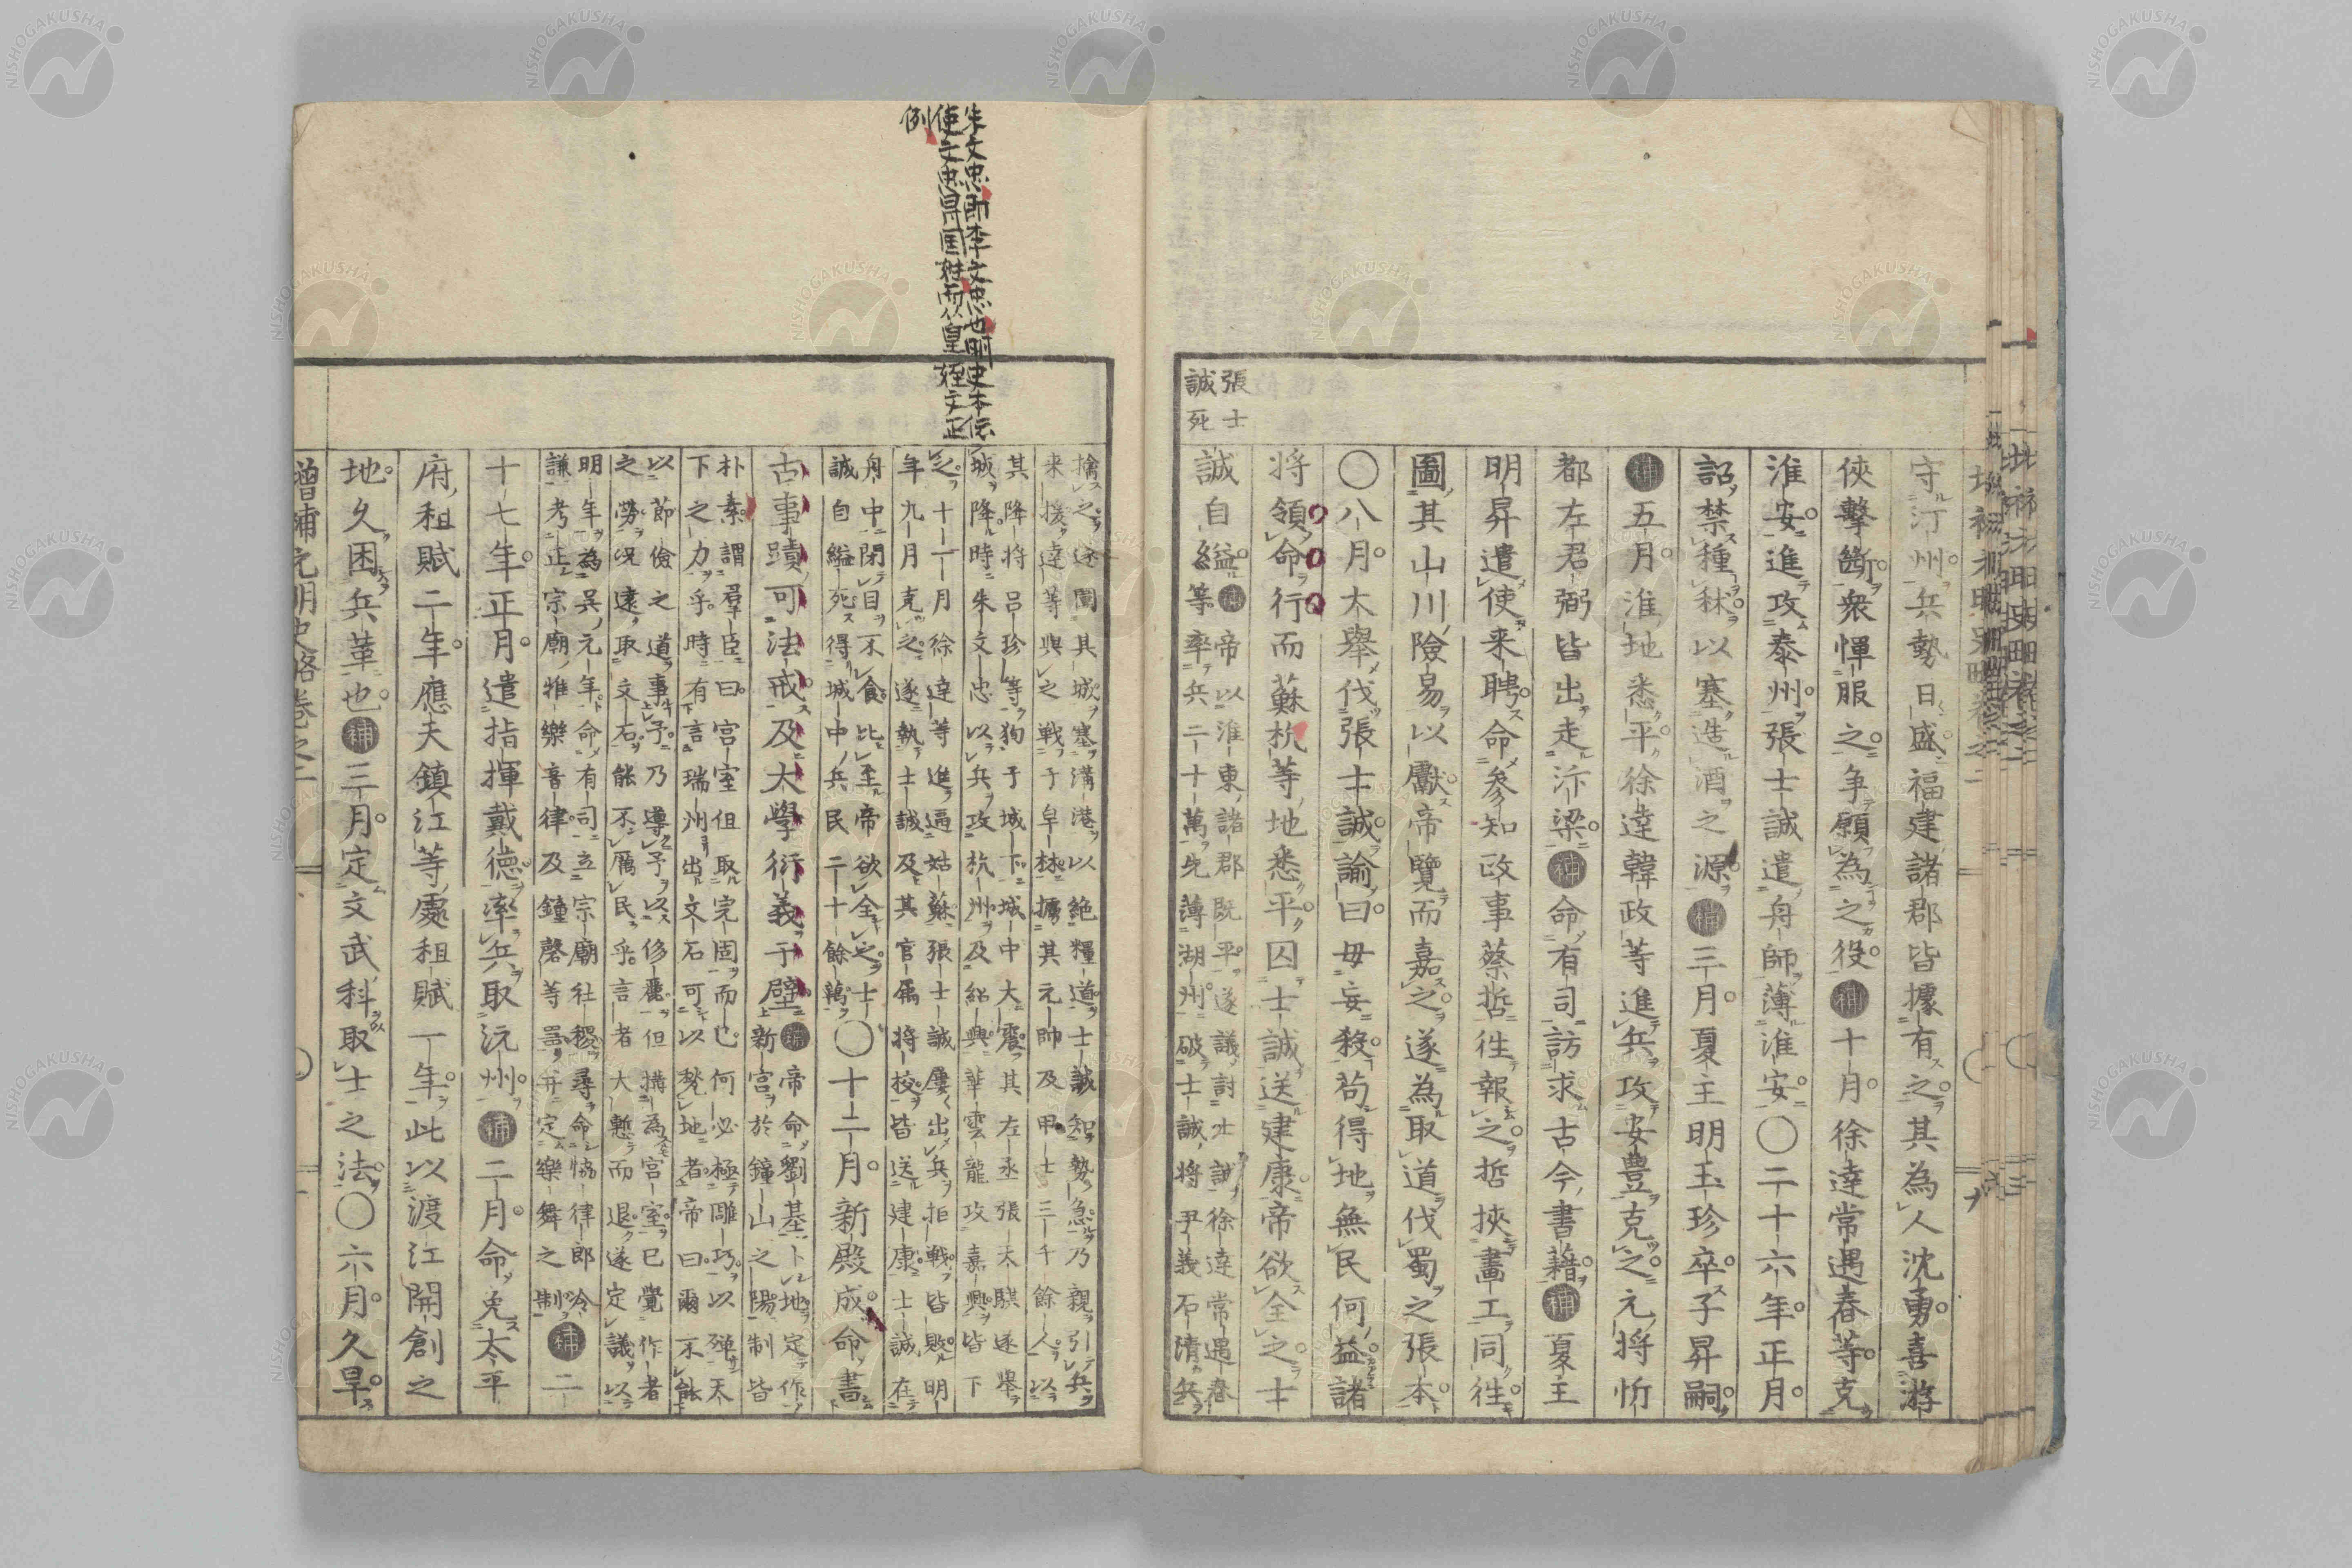 守汀州兵勢日盛福建諸郡皆據有之其為人沈勇喜游
俠擊斷衆憚服之争願為之役補十月徐達常遇春等克
淮安進攻泰州張士誠遣舟師薄淮安〇二十六年正月
詔禁種秫以塞造酒之源補三月夏主明玉珍卒子昇嗣
補五月淮地悉平徐達韓政等進兵攻安豊克之元將忻
都左君弼皆出走汴梁補命有司訪求古今書籍補夏主
明昇遣使来聘命參知政事蔡哲徃報之哲挾畫工同徃
圖其山川險易以獻帝覽而嘉之遂為取道伐蜀之張本
〇八月大舉伐張士誠諭曰毋妄殺苟得地無民何益諸
将領命行而蘇杭等地悉平囚士誠送建康帝欲全之士
張士
誠死
誠自縊補
帝以淮東諸郡既平遂議討士誠徐達常遇春
等率兵二十萬先薄湖州破士誠将尹義石清兵
朱文忠即李文忠也明史本伝
使文忠昇国姓而以皇姪文正
例
擒之遂圍其城塞溝港以絶糧道士誠知勢急乃親引兵
来援達等與之戰于皁林擄其元帥及甲士三千餘人以
其降将呂珍等狥于城下城中大震其左丞張天騏遂舉
城降時朱文忠以兵攻杭州及紹興華雲龍攻嘉興皆下
之十一月徐達等進逼姑蘇張士誠屢出兵拒戰皆敗明
年九月克之遂執士誠及其官属将校皆送建康士誠在
舟中閉目不食比至帝欲全之士
誠自縊死得城中兵民二十餘萬
〇十二月新殿成命書
古事蹟可法戒及大學衍義于壁補
帝命劉基卜地定作
新宮於鐘山之陽制皆
朴素謂羣臣曰宮室但取完固而已何必極雕巧以殫天
下之力乎時有言瑞州出文石可以甃地者帝曰爾不能
以節儉之道事予乃導予以侈麗但搆為宮室已覺作者
之勞况遠取文石能不厲民乎言者大慙而退遂定議以
明年為吳元年命有司立宗廟社稷尋命恊律郎冷
謙考正宗廟雅樂音律及鐘磬等噐并定樂舞之制
補二
十七年正月遣指揮戴德率兵取沅州補二月命免太平
府租賦二年應天鎮江等處租賦一年此以渡江開創之
地久困兵革也補三月定文武科取士之法〇六月久旱
增補元明史略卷之二
NISHOGAKUSHA